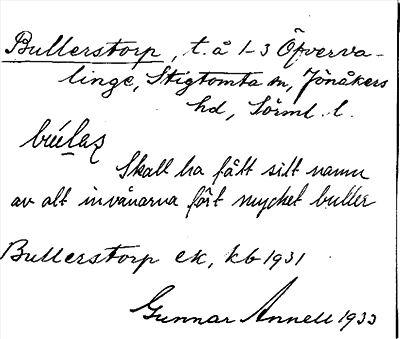 Bullerstorp, t. å 1-3 Öfverva-
linge, Stigtomta sn, Jönåkers
hd, Sörml. l.
Skall ha fått sitt namn
av att invånarna fört mycket buller
Bullerstorp ek, kb 1931
Gunnar Annell 1933